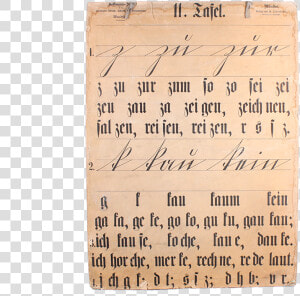 11. Tafel.
1. z zu zur
z zu zur zum so zo sei zei
zen zau za zeigen, zeichnen,
salzen, reisen, reizen, r s ſ z.
2. k kau kein
k kau kaum kein
ga ka, ge ke, go ko, gu ku, gau kau;
ich kaufe, koche, kaue, danke.
ich horche, merke, rechne, rede laut.
i ch g k; d t; s ſ z; d h b; v r.